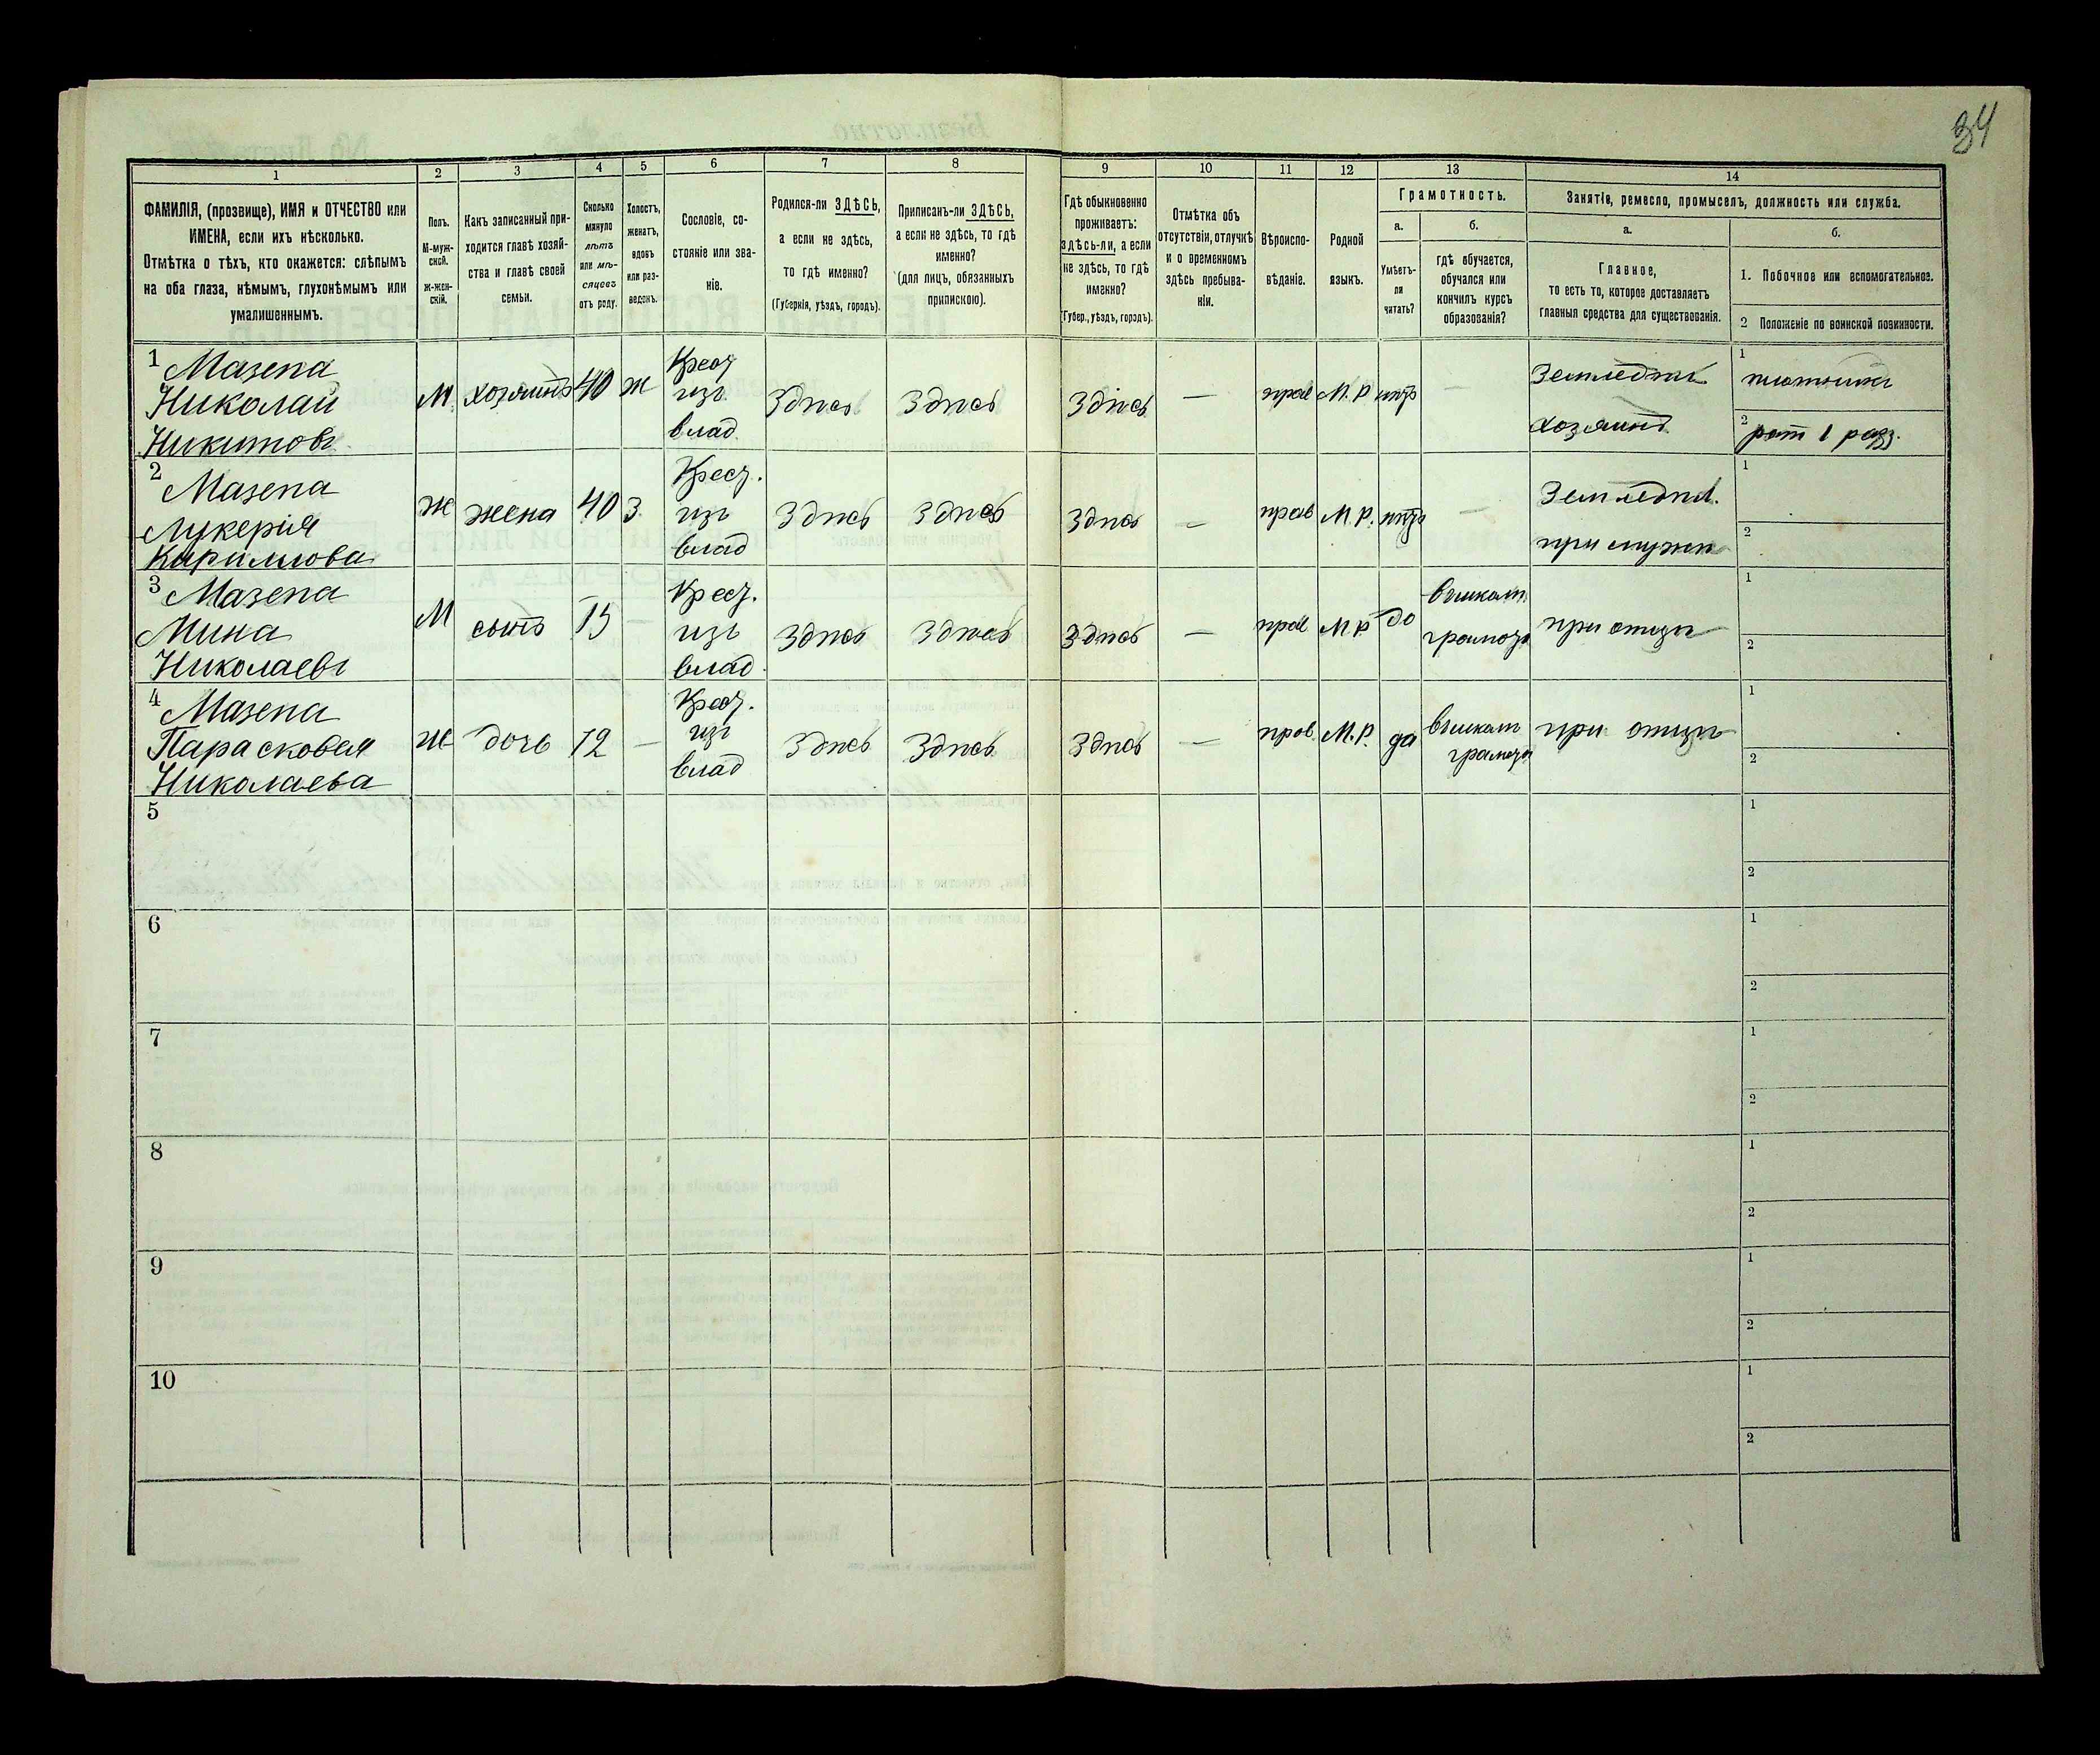 34
1 2 3 4 5 6 7 8 9 10 11 12 13 14
ФАМИЛІЯ, (прозвище), ИМЯ и ОТЧЕСТВО или
ИМЕНА, если ихъ нѣсколько.
Отмѣтка о тѣхъ, кто окажется: слѣпымъ
на оба глаза, нѣмымъ, глухонѣмымъ или
умалишеннымъ.
Полъ.
М-муж-
ской.
Ж-жен-
скій.
Какъ записанный при-
ходится главѣ хозяй-
ства и главѣ своей
семьи.
Сколько
минуло
лѣтъ
или мѣ-
сяцевъ
отъ роду.
Холостъ,
женатъ,
вдовъ
или раз-
веденъ.
Сословіе, со-
стояніе или зва-
ніе.
Родился-ли ЗДѢСЬ,
а если не здѣсь,
то гдѣ именно?
(Губернія, уѣздъ, городъ).
Приписанъ-ли ЗДѢСЬ,
а если не здѣсь, то гдѣ
именно?
(для лицъ, обязанныхъ
припискою).
Гдѣ обыкновенно
проживаетъ:
здѣсь-ли, а если
не здѣсь, то гдѣ
именно?
(Губер., уѣздъ, городъ).
Отмѣтка объ
отсутствіи, отлучкѣ
и о временномъ
здѣсь пребыва-
ніи.
Вѣроиспо-
вѣданіе.
Родной
языкъ.
Грамотность.
а.
Умѣетъ-
ли
читать?
б.
гдѣ обучается,
обучался или
кончилъ курсъ
образованія?
Занятіе, ремесло, промыселъ, должность или служба.
а.
Главное,
то есть то, которое доставляетъ
главныя средства для существованія.
б.
1. Побочное или вспомогательное.
2 Положеніе по воинской повинности.
1 Мазепа
Николай
Никитовъ
М хозяинъ 40 ж
Крест
изъ
влад.
Здѣсь Здѣсь Здѣсь — прав М.Р нѣтъ —
Земледѣлі
хозяинъ
1 плотникъ
2 рат 1 разр.
2 Мазепа
Лукерія
Кирилова
ж жена 40 З.
Крест.
изъ
влад
Здѣсь Здѣсь Здѣсь — прав М.Р. нѣтъ —
Земледѣл.
при мужѣ
1
2
3 Мазепа
Мина
Николаевъ
М сынъ 15 —
Крест.
изъ
влад.
Здѣсь Здѣсь Здѣсь — прав М Р да
въ школѣ
грамоты
при отцѣ
1
2
4 Мазепа
Парасковея
Николаева
ж дочь 12 —
Крест.
изъ
влад
Здѣсь Здѣсь Здѣсь — прав. М.Р. да
въ школѣ
грамоты
при отцѣ
1
2
5
1
2
6
1
2
7
1
2
8
1
2
9
1
2
10
1
2